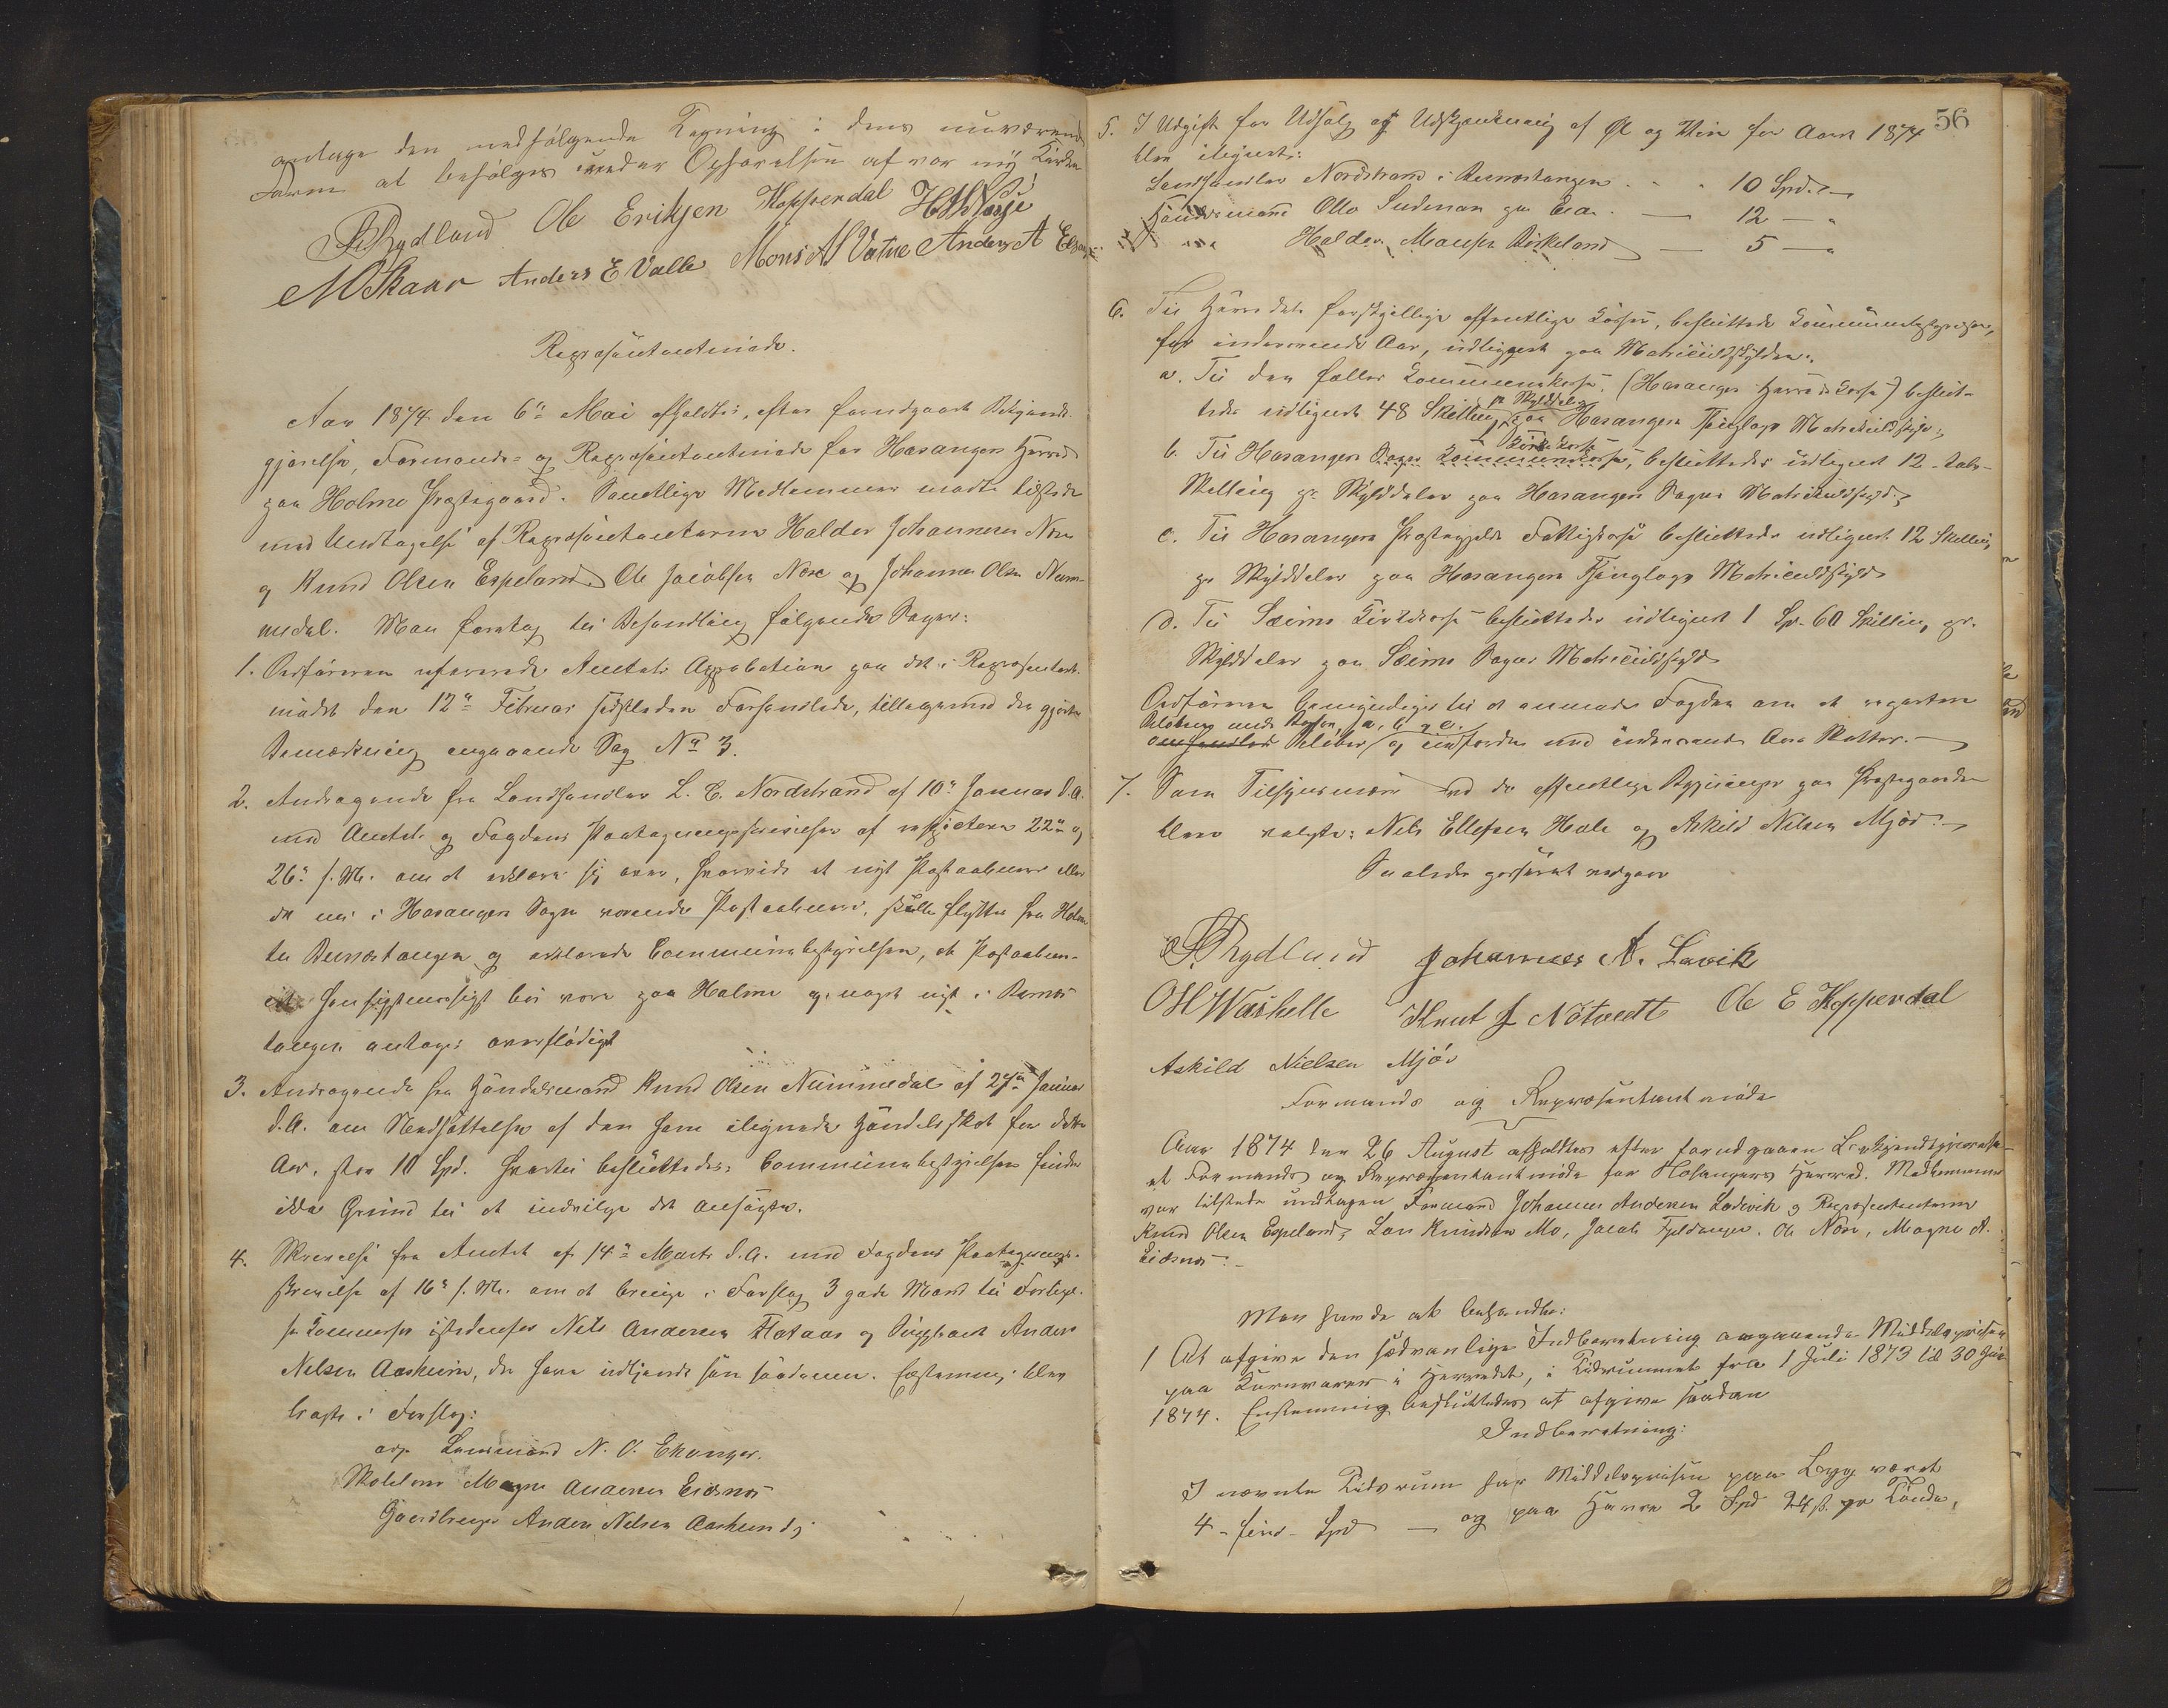 antage den medfølgende Tegning i dens nuværende
Form at befølges under Opførelsen af vor ny Kirke
Rydland Ole Eriksen Kopperdal
M Skaar Anders E. Valle Mons A Vatne Anders A
Repræsentantmøde.
Aar 1874 den 6te Mai afholdtes, efter forudgaaet Bekjendt-
gjørelse, Formands- og Repræsentantmøde for Hosangers Herred
paa Holme Præstegaard. Samtlige Medlemmer mødte tilstede
med Undtagelse af Repræsentanterne Haldor Johannesen Nore
og Knud Olsen Espeland, Ole Jacobsen Nore og Johannes Olsen Num-
medal. Man foretog til Behandling følgende Sager:
1. Ordføreren refererede Amtets Approbation paa det i Repræsentant-
mødet den 12te Februar sidstleden Forhandlede, tilligemed den gjorte
Bemærkning angaaende Sag No 3.
2. Andragende fra Landhandler L. C. Nordstrand af 10de Januar d.A.
med Amtets og Fogdens Paategningsskrivelser af respective 22de og
26de s. M. om at erklære sig over, hvorvidt et nyt Postaabneri eller
det nu i Hosangers Sogn værende Postaabneri, skulle flyttes fra Holme
til Bernestangen og erklærede Communebestyrelsen, at Postaabne-
riet hensigtsmæssigt bør være paa Holme og noget nyt i Bernes-
tangen antages overflødigt
3. Andragende fra Handelsmand Knud Olsen Nummedal af 27de Januar
d.A. om Nedsættelse af den ham ilignede Handelsskat for dette
Aar, stor 10 Spd. Hvortil besluttedes: Communebestyrelsen finder
ikke Grund til at indvilge det ansøgte.
4. Skrivelse fra Amtet af 14de Marts d.A. med Fogdens Paategnings-
skrivelse af 16de s. M. om at bringe i Forslag 3 gode Mænd til Forligel-
ses Commissær istedenfor Nils Andersen Flataas og Anders
Nilsen Aasheim, der have udtjent som saadanne. Eenstemmig blev
bragte i Forslag:
Lensmand N. O. Ekanger.
Skolelærer Magne Andersen Eidsnes
Gaardbruger Anders Nilsen Aasheim
56
5. I Udgift for Udsalg og Udskjænkning af Øl og Vin for Aaret 1874
blev ilignet:
Landhandler Nordstrand i Bernestangen - - 10 Spd. -
Handelsmand Otto Sudman paa - 12 - "
" Haldor Monsen Birkeland - 5 - "
6. Til Herredets forskjellige offentlige Kasser, besluttede Communebestyrelsen,
for indeværende Aar, udlignet paa Matriculskylden.
a. Til den fælles Communekasse, (Hosangers Herredskasse) beslut-
tedes udlignet 48 Skilling pr Skylddaler paa Hosangers Thinglags Matriculskyld;
b. Til Hosangers Sogns Communekasse Kirkekasse, besluttedes udlignet 12 - tolv -
Skilling pr Skylddaler paa Hosangers Sogns Matriculskyld;
c. Til Hosangers Præstegjelds Fattigkasse besluttedes udlignet 12 Skilling
pr Skylddaler paa Hosangers Thinglags Matriculskyld
d. Til Sæims Kirkekasse besluttedes udlignet 1 Spd. 60 Skilling pr.
Skylddaler paa Sæims Sogns Matriculskyld
Ordføreren bemyndiges til at anmode Fogden om at repartere
Beløbene under Posten a, b og c.
omhandlede Beløber og indfordre med indeværende Aars Skatter.
7. Som Tilsynsmænd ved de offentlige Bygninger paa Præstegaarden
bleve valgte: Nils Ellefsen Hole og Askild Nilsen Mjøs.
Saaledes passeret vedgaaes
Rydland Johannes A. Lavik
O H Washelle Knut J Nötvedt Ole E Kopperdal
Askild Nielsen Mjös
Formands og Repræsentantmøde
Aar 1874 den 26 August afholdtes efter forudgaaen Bekjendtgjørelse
et Formands og Repræsentantmøde for Hosangers Herred. Medlemmerne
var tilstede undtagen Formand Johannes Andersen Ladevik og Repræsentanterne
Knud Olsen Espeland, Lars Knudsen Mo, Jacob Fjeldanger, Ole Nore, Magne A.
Eidsnes.
Man havde at behandle:
1 At afgive den sædvanlige Indberetning angaaende Middelprisen
paa Kornvarer i Herredet, i Tidrummet fra 1 Juli 1873 til 30 Juni
1874. Enstemmig besluttedes at afgive saadan
Indberetning:
I nævnte Tidsrum har Middelsprisen paa Byg været
4 - fire - Spd - og paa Havre 2 Spd 24 s. pr Tønde,